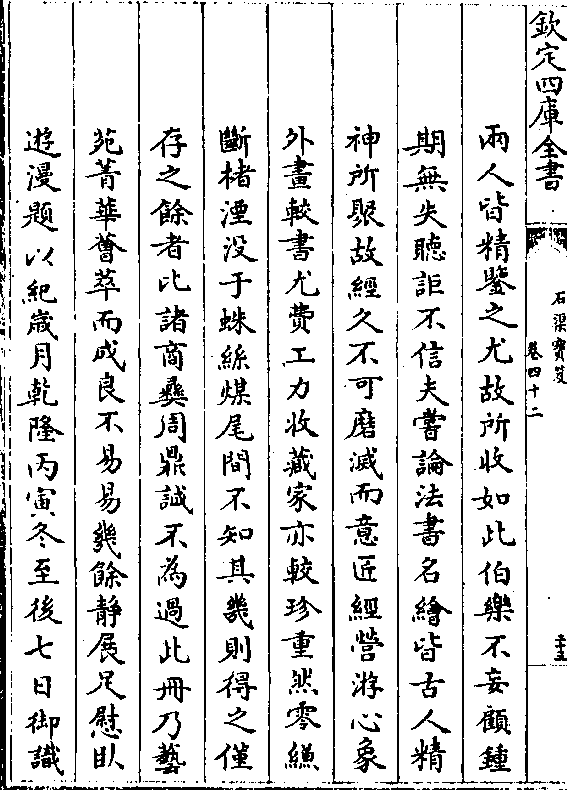 欽定四庫全書
石渠寶笈
卷四十二
兩人皆精鑒之尤故所收如此伯樂不妄顧鍾
期無失聽詎不信夫嘗論法書名繪皆古人精
神所聚故經久不可磨滅而意匠經營游心象
外畫較書尤費工力收藏家亦較珍重然零縑
斷楮湮没于蛛絲煤尾間不知其幾則得之僅
存之餘者比諸商彝周鼎誠不為過此冊乃藝
苑菁華薈萃而成良不易易幾餘靜展足慰臥
遊漫題以紀歲月乾隆丙寅冬至後七日御識